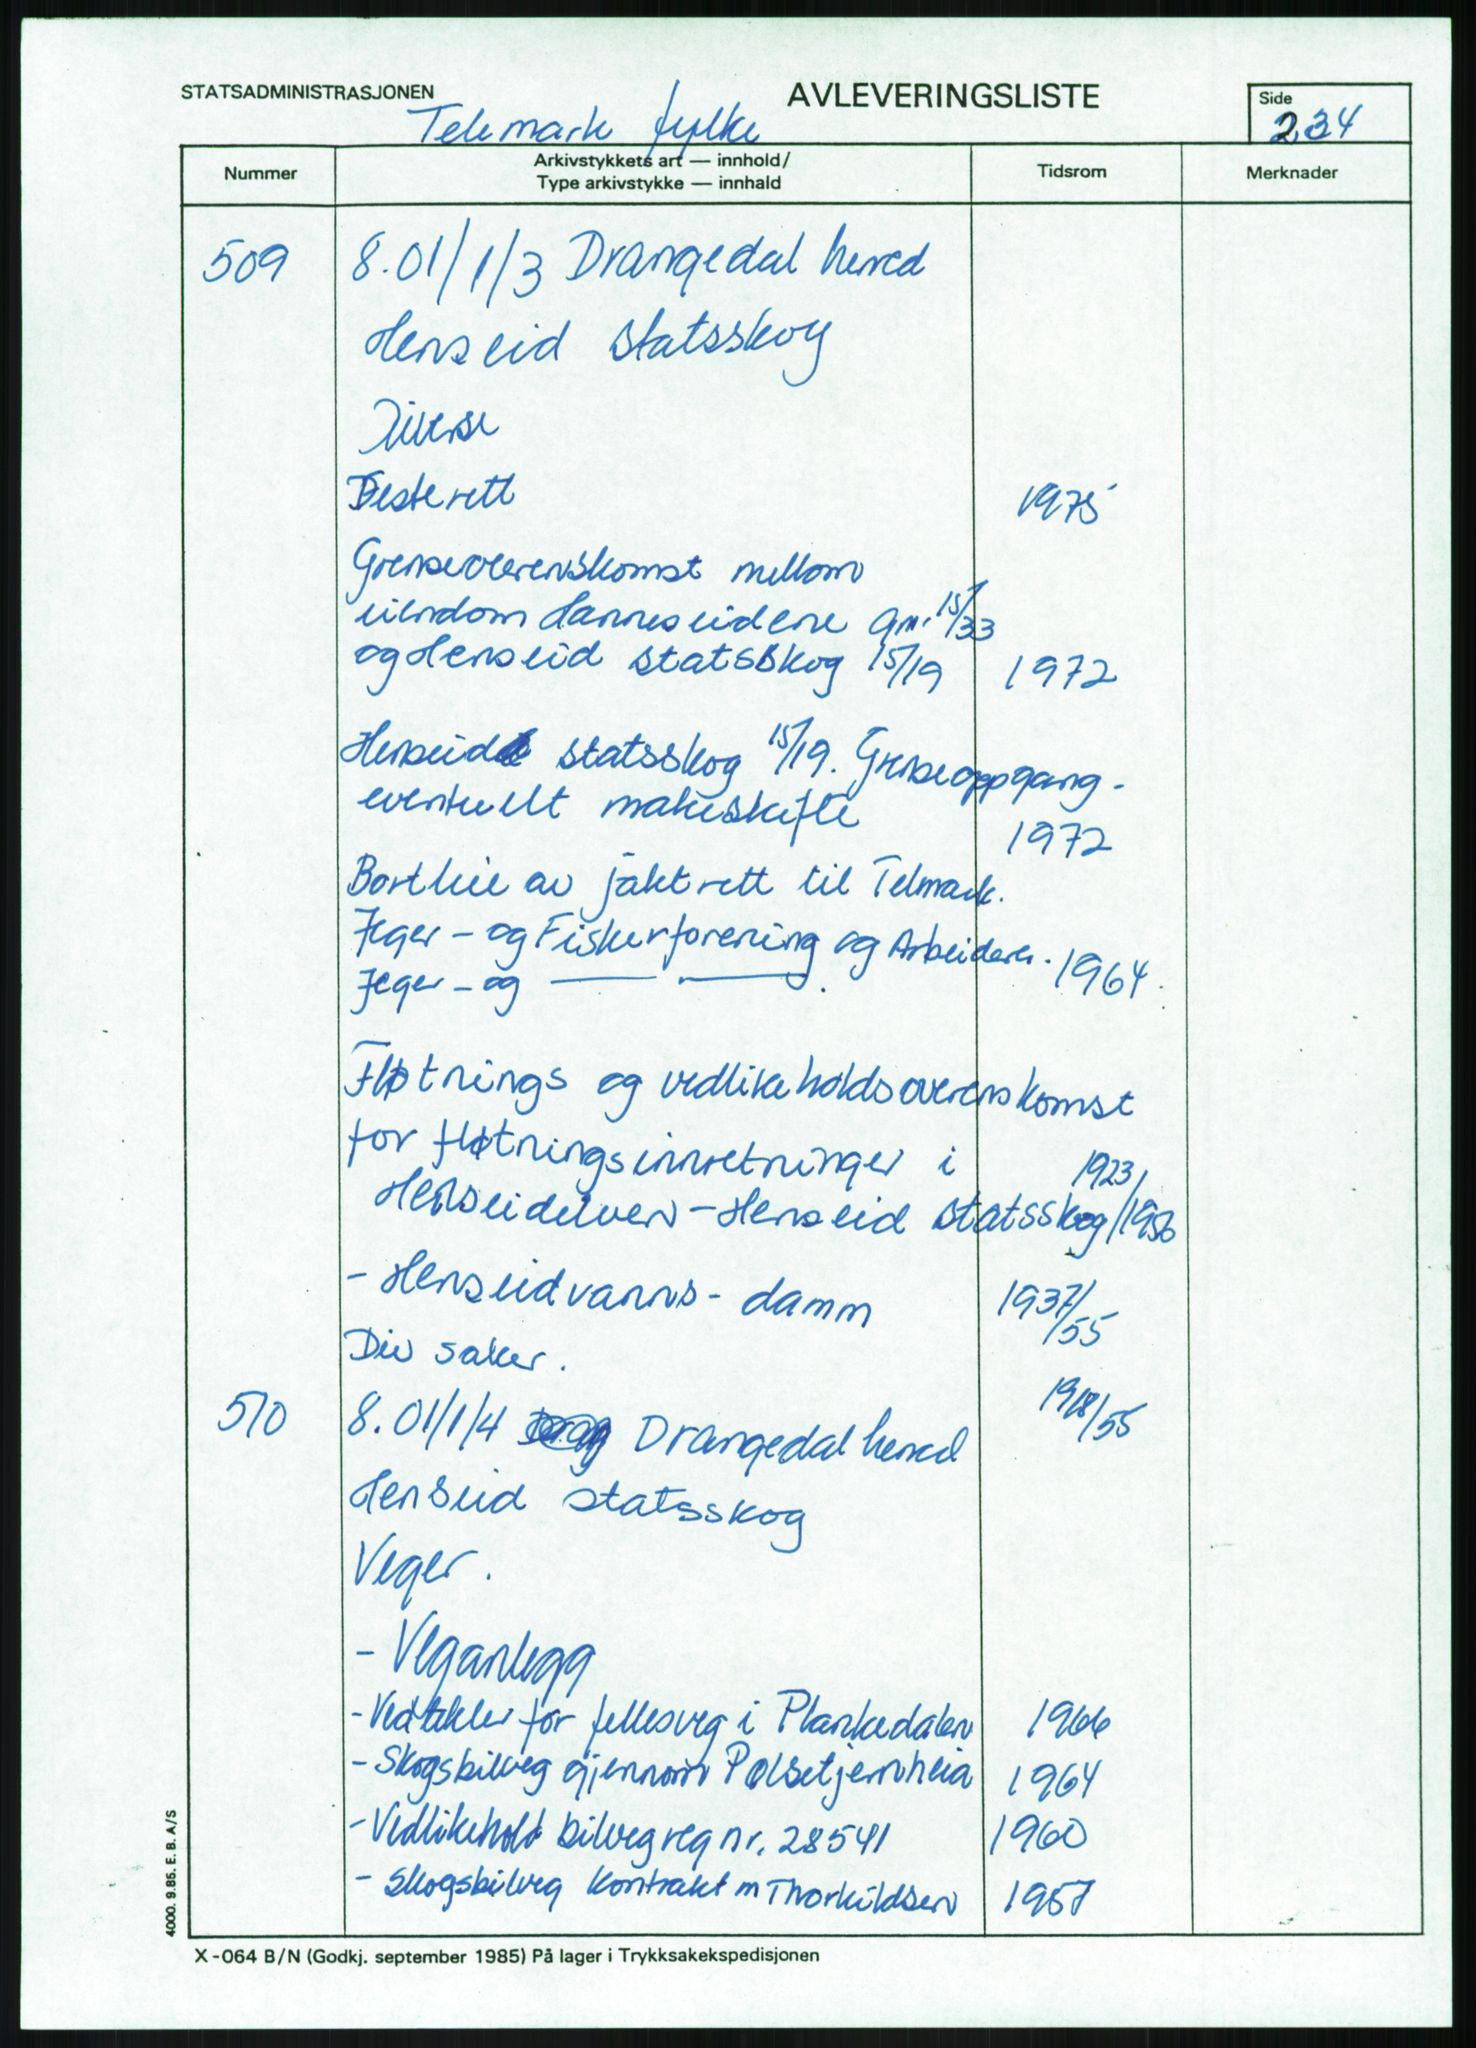 STATSADMINISTRASJONEN
AVLEVERINGSLISTE
Side
234
Telemark fylke
Nummer
Arkivstykkets art — innhold/
Type arkivstykke — innhald
Tidsrom
Merknader
509 8.01/1/3 Drangedal herred
Henseid statsskog
Diverse
Festerett 1975
Grenseoverenskomst mellom
eiendom Hanneseidene gnr. 15/33
og Henseid statsskog 15/19 1972
Henseid statsskog 15/19. Grenseoppgang -
eventuelt makeskifte 1972
Bortleie av jaktrett til Telmark.
Jeger- og Fiskerforening og Arbeidern.
Jeger - og — — . 1964
Fløtnings og vedlikeholdsoverenskomst
for fløtningsinnretninger i 1923/
Henseidelven - Henseid statsskog /1956
- Henseidvanns - damm 1937/55
Div saker.
510 8.01/1/4 Drangedal herred 1918/55
Henseid statsskog
Veger.
- Veganlegg
- Vedtekter for fellesveg i Plankedalen 1966
- Skogsbilveg gjennom Pølsetjernheia 1964
- Vedlikehold bilveg reg nr. 28541 1960
- Skogsbilveg kontrakt m Thorkildsen 1957
4000. 9.85. E. B. A/S
X-064 B/N (Godkj. september 1985) På lager i Trykksakekspedisjonen